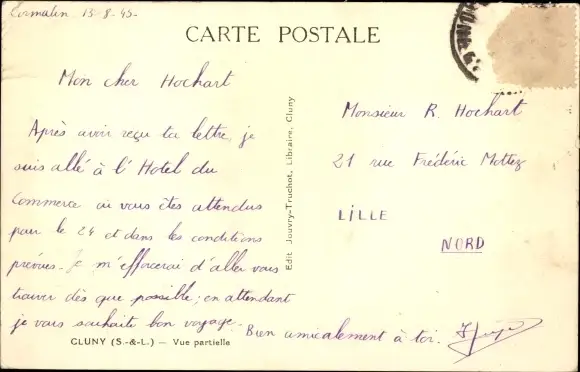 Cormatin 13-8-45-
CARTE POSTALE
Mon cher Hochart
Après avoir reçu ta lettre, je
suis allé à l'Hotel du
Commerce où vous êtes attendus
pour le 24 et dans les conditions
prévues. Je m'efforcerai d'aller vous
trouver dès que possible; en attendant
je vous souhaite bon voyage.
Bien amicalement à toi.
CLUNY (S.-&-L.) — Vue partielle
Edit. Jouvry-Truchot, Libraire, Cluny
Monsieur R. Hochart
21 rue Frédéric Mottez
LILLE
NORD